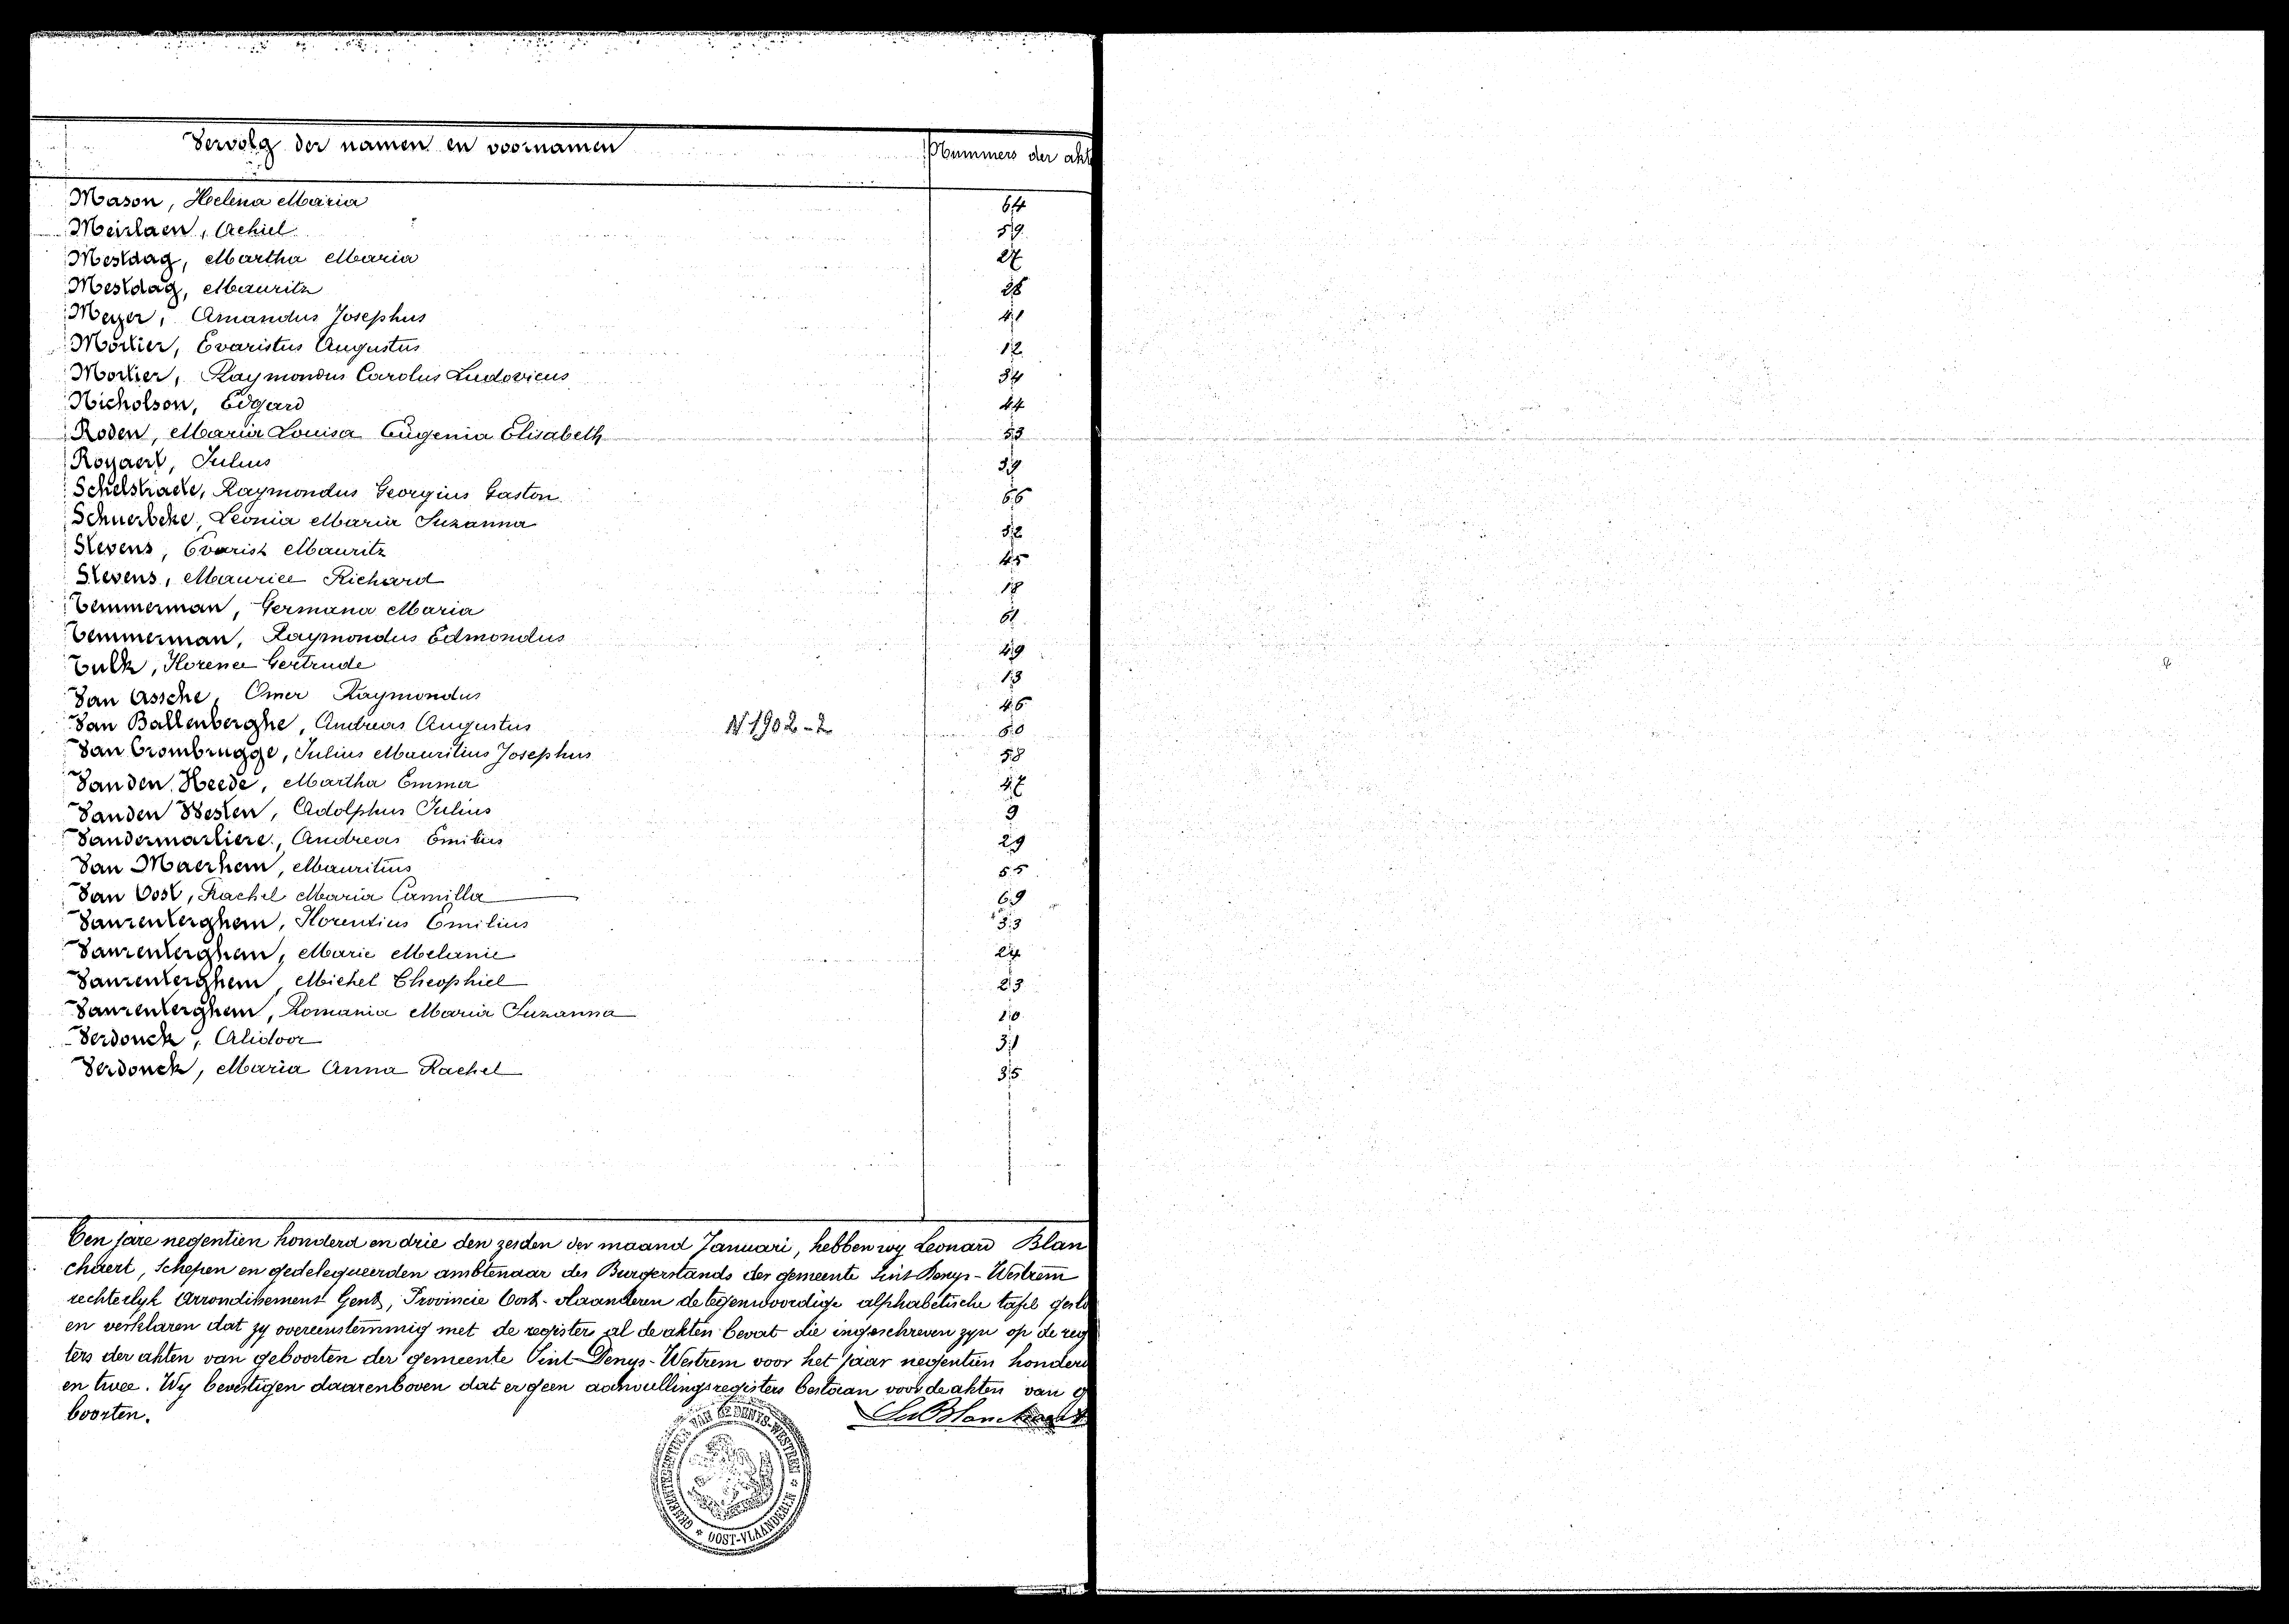 Vervolg der namen en voornamen
Nummers der akt
Mason, Helena Maria 64
Meirlaen, Achiel 59
Mestdag, Martha Maria 27
Mestdag, Mauritz 28
Meyer, Amandus Josephus 41
Mortier, Evaristus Augustus 12
Mortier, Raymondus Carolus Ludovicus 34
Nicholson, Edgard 44
Roden, Maria Louisa Eugenia Elisabeth 53
Rogaert, Julius 39
Schelstraete, Raymondus Georgius Gaston 66
Leonia Maria Suzanna
Stevens, Evarist Mauritz 45
Stevens, Maurice Richard 18
Temmerman, Germana Maria 61
Temmerman, Raymondus Edmondus 49
Tulk, Florence Gertrude 13
Van Assche, Omer Raymondus 46
Van Ballenberghe, Andreas Augustus N 1902-2
Van Crombrugge, Julius Mauritius Josephus 58
Van den Heede, Martha Emma 47
Vanden Westen, Adolphus Julius 9
Vandermarliere, Andreas Emilius 29
Van Maerhem, Mauritius 55
Van Oost, Rachel Maria Camilla 69
Vanrenterghem, Florentius Emilius 33
Vanrenterghem, Marie Melanie 24
Vanrenterghem, Michel Theophiel 23
Vanrenterghem, Romania Maria Suzanna
Verdonck, Alidoor 31
Verdonck, Maria Anna Rachel 35
Ten jare negentien honderd en drie den zesden der maand Januari, hebben wy Leonard Blan
chaert, Schepen en gedelegueerden ambtenaar des Burgerstands der gemeente Sint Denys-Westrem
rechterlyk Arrondissement Gent, Provincie Oost-vlaanderen de tegenwoordige alphabetische tafel geslo
en verklaren dat zy overeenstemmig met de register al de akten bevat die ingeschreven zyn op de reg
ters der akten van geboorten der gemeente Sint-Denys-Westrem voor het jaar negentien honderd
en twee. Wy bevestigen daarenboven dat er geen aanvullingsregisters bestaan voor de akten van g
boorten.
GEMEENTEBESTUUR VAN St DENYS-WESTREM * OOST-VLAANDEREN *